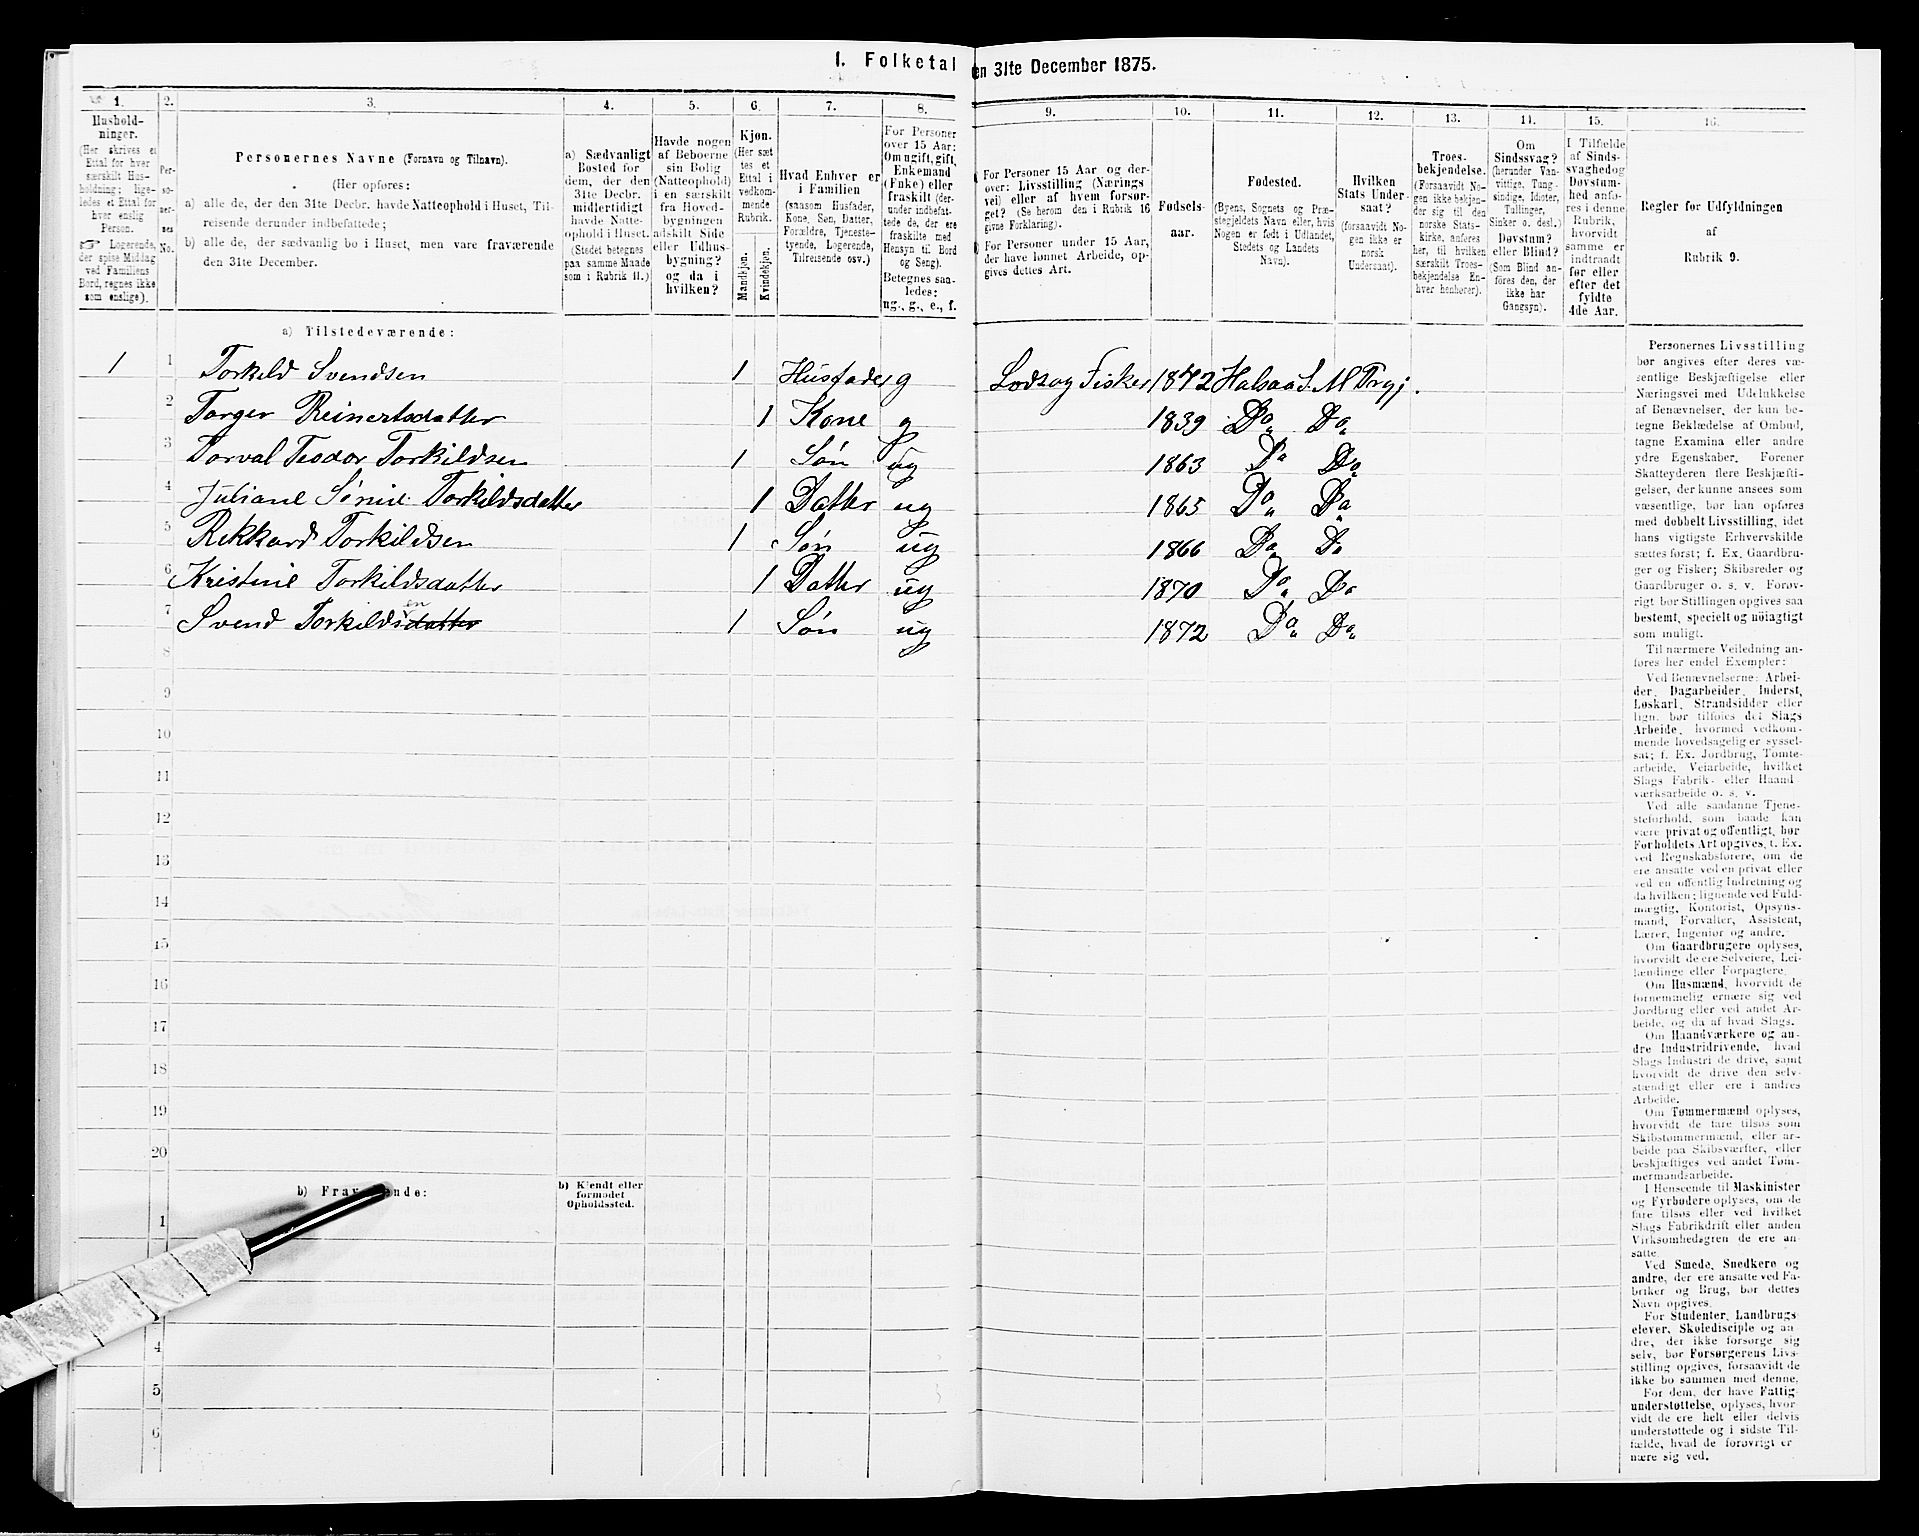 I. Folketal
en 31te December 1875.
1.
2.
3.
4.
5.
6.
7.
8.
9.
10.
11.
12.
13.
14.
15.
16.
Hushold-
ninger.
(Her skrives et
Ettal for hver
særskilt Hus-
holdning; lige-
ledes et Ettal for
hver enslig
Person.
☞ Logerende,
der spise Middag
ved Familiens
Bord, regnes ikke
som enslige).
Per-
so-
ner-
nes
No.
Personernes Navne (Fornavn og Tilnavn).
(Her opføres:
a) alle de, der den 31te Decbr. havde Natteophold i Huset, Til-
reisende derunder indbefattede;
b) alle de, der sædvanlig bo i Huset, men vare fraværende
den 31te December.
a) Sædvanligt
Bosted for
dem, der den
31te Decbr.
midlertidigt
havde Natte-
ophold i Huset.
(Stedet betegnes
paa samme Maade
som i Rubrik 11.)
Havde nogen
af Beboerne
sin Bolig
(Natteophold)
i en særskilt
fra Hoved-
bygningen
adskilt Side
eller Udhus-
bygning?
og da i
hvilken?
Kjøn.
(Her sæt
tes et
Ettal i
vedkom-
mende
Rubrik.
Mandkjøn.
Kvindekjøn.
Hvad Enhver er
i Familien
(saasom Husfader,
Kone, Søn, Datter,
Forældre, Tjeneste-
tyende, Logerende,
Tilreisende osv.)
For Personer
over 15 Aar:
Om ugift, gift,
Enkemand
(Enke) eller
fraskilt (der-
under indbefat-
tede de, der ere
fraskilte med
Hensyn til Bord
og Seng).
Betegnes saa-
ledes:
ug., g., e., f.
For Personer 15 Aar og der-
over: Livsstilling (Nærings
vei) eller af hvem forsør-
get? (Se herom den i Rubrik 16
givne Forklaring).
For Personer under 15 Aar,
der have lønnet Arbeide, op-
gives dettes Art.
Fødsels-
aar.
Fødested.
(Byens, Sognets og Præ-
stegjeldets Navn eller, hvis
Nogen er født i Udlandet,
Stedets og Landets
Navn).
Hvilken
Stats Under-
saat?
(forsaavidt No-
gen ikke er
norsk
Undersaat).
Troes-
bekjendelse.
(Forsaavidt No-
gen ikke bekjen-
der sig til den
norske Stats-
kirke, anføres
her, til hvilken
særskilt Troes-
bekjendelse En-
hver henhører).
Om
Sindssvag?
(herunder Van-
vittige, Tung-
sindige, Idioter,
Tullinger,
Sinker o. desl.)
Døvstum?
eller Blind?
(Som Blind an-
føres den, der
ikke har
Gangsyn).
I Tilfælde
af Sinds-
svaghed og
Døvstum-
hed anfø-
res i denne
Rubrik,
hvorvidt
samme er
indtraadt
før eller
efter det
fyldte
4de Aar.
Regler for Udfyldningen
af
Rubrik 9.
a) Tilstedeværende:
1 1 Torkild Svendsen 1 Husfader g Lods og Fisker 1842 Halsaa S. M Prgj.
2 Torger Reinertsdatter 1 Kone g 1839 Do Do
3 Torval Teodor Torkildsen 1 Søn ug 1863 Do Do
4 Juliane Sørine Torkildsdatter 1 Datter ug 1865 Do Do
5 Rikkard Torkildsen 1 Søn ug 1866 Do Do
6 Kristine Torkildsdatter 1 Datter ug 1870 Do Do
7 Svend Torkildsdatter en 1 Søn ug 1872 Do Do
8
9
10
11
12
13
14
15
16
17
18
19
20
b) Frav ende:
b) Kjendt eller
formodet
Opholdssted.
1
4
5
6
Personernes Livsstilling
bør angives efter deres væ-
sentlige Beskjæftigelse eller
Næringsvei med Udelukkelse
af Benævnelser, der kun be-
tegne Beklædelse af Ombud,
tagne Examina eller andre
ydre Egenskaber. Forener
Skatteyderen flere Beskjæfti-
gelser, der kunne ansees som
væsentlige, bør han opføres
med dobbelt Livsstilling, idet
hans vigtigste Erhvervskilde
sættes først; f. Ex. Gaardbru-
ger og Fisker; Skibsreder og
Gaardbruger o. s. v. Forøv-
rigt bør Stillingen opgives saa
bestemt, specielt og nøiagtigt
som muligt.
Til nærmere Veiledning an-
føres her endel Exempler:
Ved Benævnelserne: Arbei-
der, Dagarbeider, Inderst,
Løskarl, Strandsidder eller
lign. bør tilføies det Slags
Arbeide, hvormed vedkom-
mende hovedsagelig er syssel-
sat; f. Ex. Jordbrug, Tomte-
arbeide, Veiarbeide, hvilket
Slags Fabrik- eller Haand-
værksarbeide o. s. v.
Ved alle saadanne Tjene-
steforhold, som baade kan
være privat og offentligt, bør
Forholdets Art opgives, f. Ex.
ved Regnskabsførere, om de
ere ansatte ved en privat eller
ved en offentlig Indretning og
da hvilken; lignende ved Fuld-
mægtig, Kontorist, Opsyns-
mand, Forvalter, Assistent,
Lærer, Ingeniør og andre.
Om Gaardbrugere oplyses,
hvorvidt de ere Selveiere, Lei-
lændinge eller Forpagtere.
Om Husmænd, hvorvidt de
fornemmelig ernære sig ved
Jordbrug eller ved andet Ar-
beide, og da af hvad Slags.
Om Haandværkere og an-
dre Industridrivende, hvad
Slags Industri de drive, samt
hvorvidt de drive den selv-
stændigt eller ere i andres
Arbeide.
Om Tømmermænd oplyses,
hvorvidt de fare tilsøs som
Skibstømmermænd, eller ar-
beide paa Skibsværfter, eller
beskjæftiges ved andet Tøm-
mermandsarbeide.
I Henseende til Maskinister
og Fyrbødere oplyses, om de
fare tilsøs eller ved hvilket
Slags Fabrikdrift eller anden
Virksomhedsgren de ere an-
satte.
Ved Smede, Snedkere og
andre, der ere ansatte ved Fa-
briker og Brug, bør dettes
Navn opgives.
For Studenter, Landbrugs-
elever, Skoledisciple og an-
dre, der ikke forsørge sig
selv, bør Forsørgerens Livs-
stilling opgives, forsaavidt de
ikke bo sammen med denne.
For dem, der have Fattig-
understøttelse, oplyses, hvor-
vidt de ere helt eller delvis
understøttede og i sidste Til-
fælde, hvad de forøvrigt er-
nære sig ved.